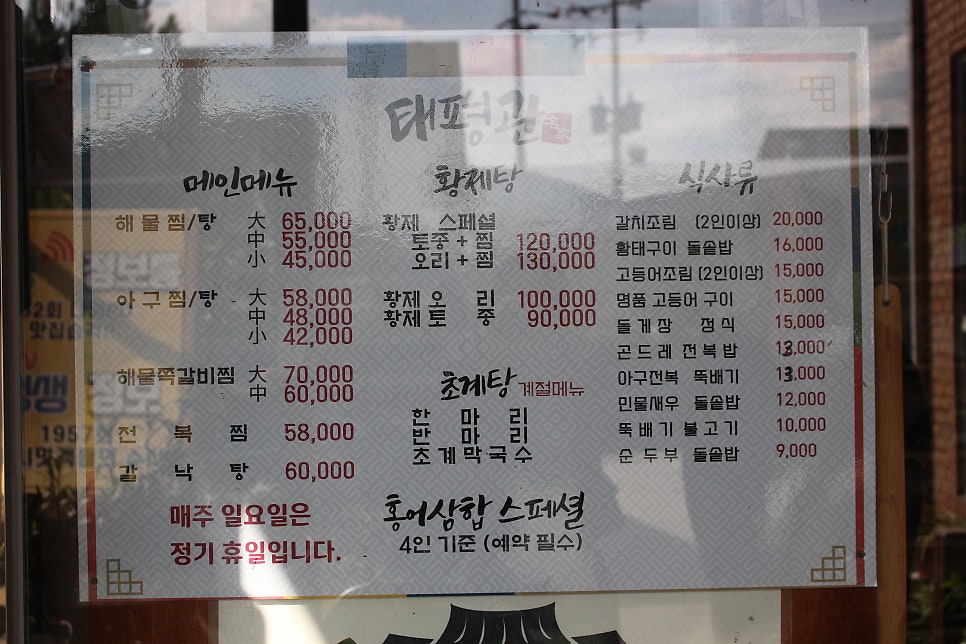 태평관
메인메뉴
해물찜/탕 大 65,000
中 55,000
小 45,000
아구찜/탕 大 58,000
中 48,000
小 42,000
해물쪽갈비찜 大 70,000
中 60,000
전복찜 58,000
갈낙탕 60,000
매주 일요일은
정기 휴일입니다.
황제탕
황제 스페셜
토종+찜 120,000
오리+찜 130,000
황제오리 100,000
황제토종 90,000
초계탕 계절메뉴
한마리
반마리
초계막국수
홍어삼합 스페셜
4인 기준 (예약 필수)
식사류
갈치조림 (2인이상) 20,000
황태구이 돌솥밥 16,000
고등어조림 (2인이상) 15,000
명품 고등어 구이 15,000
돌게장 정식 15,000
곤드레 전복밥 13,000
아구전복 뚝배기 13,000
민물새우 돌솥밥 12,000
뚝배기 불고기 10,000
순두부 돌솥밥 9,000
정보
1957